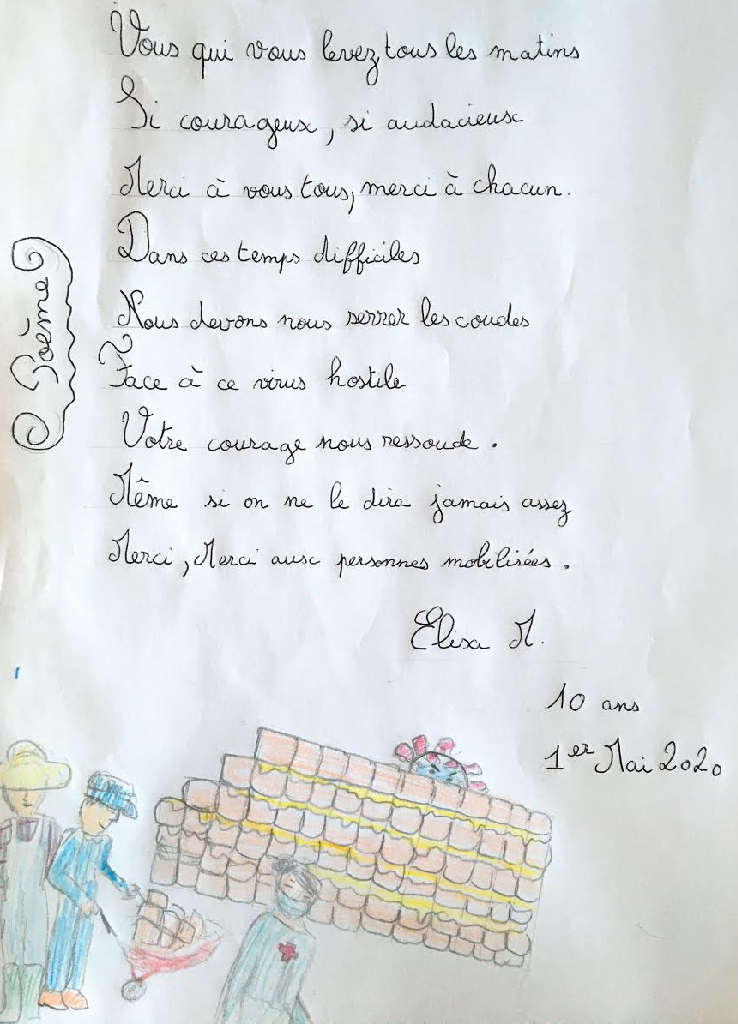 Poème
Vous qui vous levez tous les matins
Si courageux, si audacieux
Merci à vous tous, merci à chacun.
Dans ces temps difficiles
Nous devons nous serrer les coudes
Face à ce virus hostile
Votre courage nous ressoude.
Même si on ne le dira jamais assez
Merci, Merci aux personnes mobilisées.
Elisa M.
10 ans
1er Mai 2020